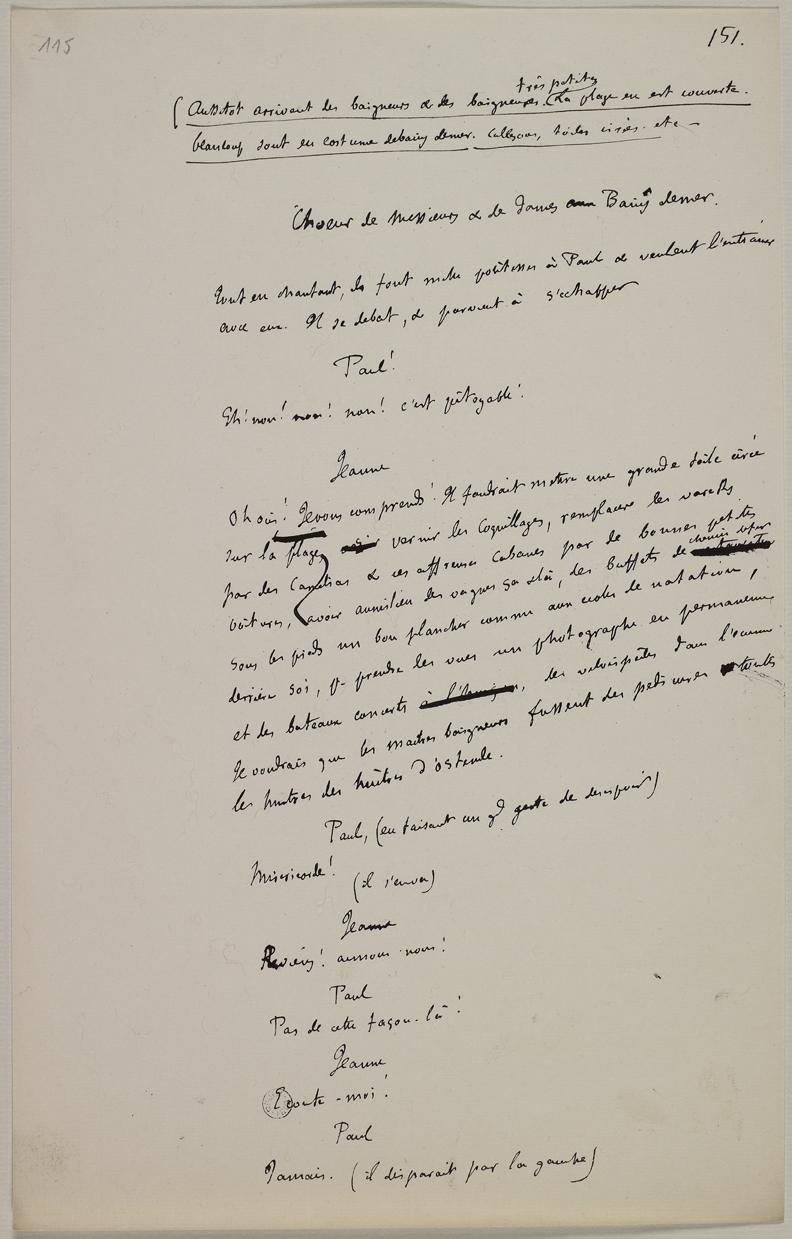 115
151.
très petites
(Aussitot arrivent des baigneurs & des baigneuses. La plage en est couverte.
beaucoup sont en costume de bains de mer. Caleçons, toiles cirées. etc —
Choeur de Messieurs & de Dames aux Bains de mer.
Tout en chantant, ils font mille politesses à Paul & veulent l'entrainer
avec eux. Il se debat, & parvient à s'echapper
Paul!
Eh! non! non! non! c'est pitoyable!
Jeanne
Oh oui! Je vous comprends! Il faudrait mettre une grande toile cirée
sur la plage, vernir les Coquillages, remplacer les varechs
par des Camelias & ces affreuses Cabanes par de bonnes petites
voitures, avoir au milieu des vagues ça & là, des buffets de chemin de fer
sous les pieds un bon plancher comme aux ecoles de natation,
derrière soi, pr prendre les vues un photographe en permanence
et des bateaux concerts à l'horizon, des velocipèdes dans l'écume
Je voudrais que les maitres baigneurs fussent des pedicures & toutes
les huitres des huitres d'ostende.
Paul, (en faisant un gd geste de desespoir)
Misericorde!
(il s'enva)
Jeanne
Reviens! aimons nous!
Paul
Pas de cette façon-là!
Jeanne
Ecoute-moi!
Paul
Jamais. (il disparait par la gauche)